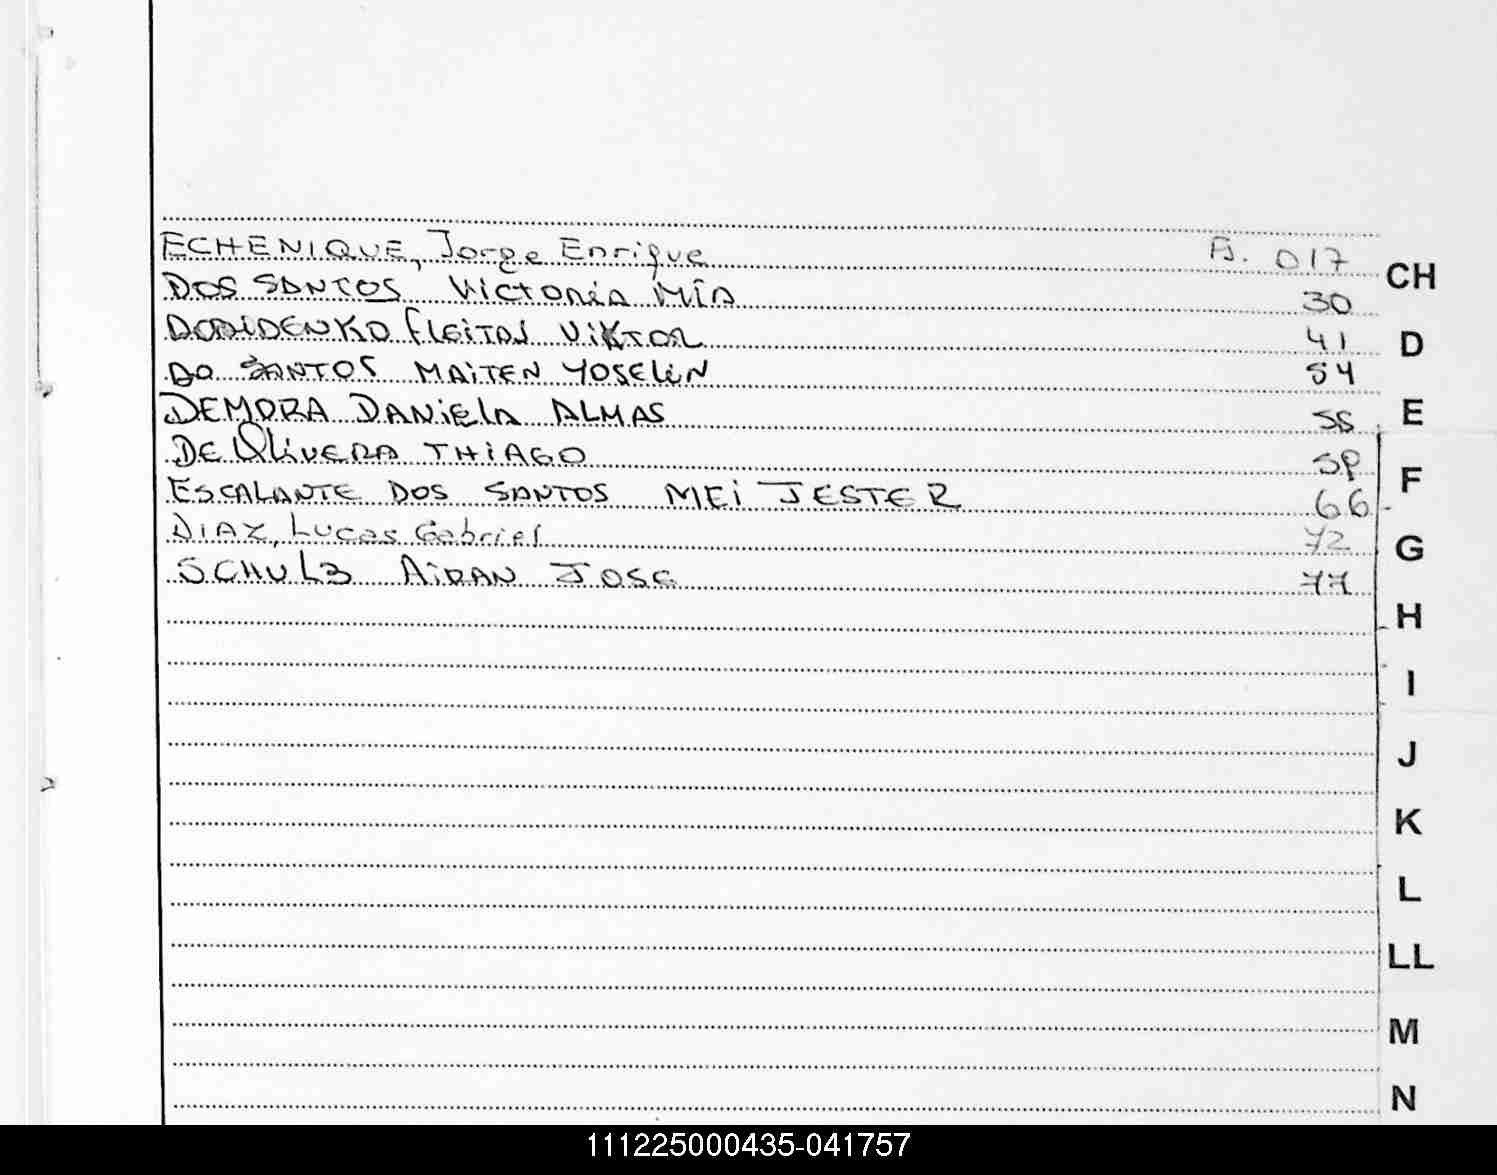 ECHENIQUE, Jorge Enrique FJ. 017
DOS SANTOS Victoria MÍA 30
DODIDENKO FLEITAS VIKTOR 41
DO SANTOS MAITEN YOSELIN 54
DEMORA DANIELA ALMAS 55
DE OLIVERA THIAGO
ESCALANTE DOS SANTOS MEI JESTER 66
DIAZ, Lucas Gabriel 72
SCHULZ AIDAN JOSE 77
CH
D
E
F
G
H
I
J
K
L
LL
M
N
111225000435-041757